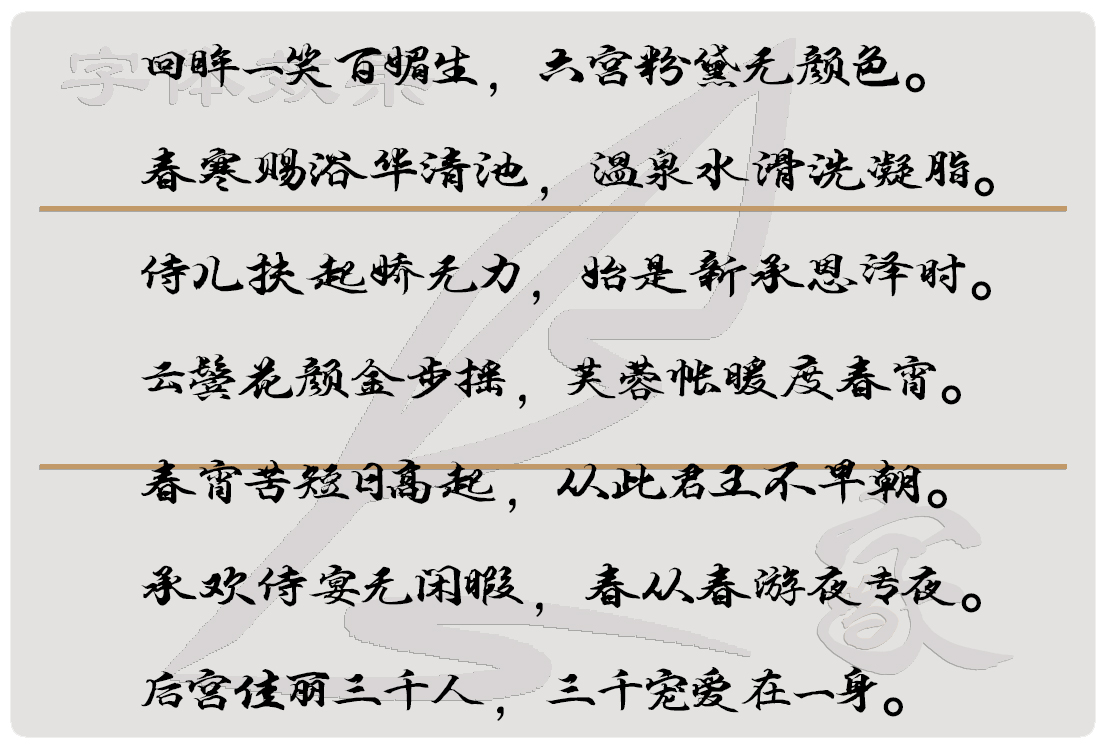 字体效果
回眸一笑百媚生，六宫粉黛无颜色。
春寒赐浴华清池，温泉水滑洗凝脂。
侍儿扶起娇无力，始是新承恩泽时。
云鬓花颜金步摇，芙蓉帐暖度春宵。
春宵苦短日高起，从此君王不早朝。
承欢侍宴无闲暇，春从春游夜专夜。
后宫佳丽三千人，三千宠爱在一身。
家